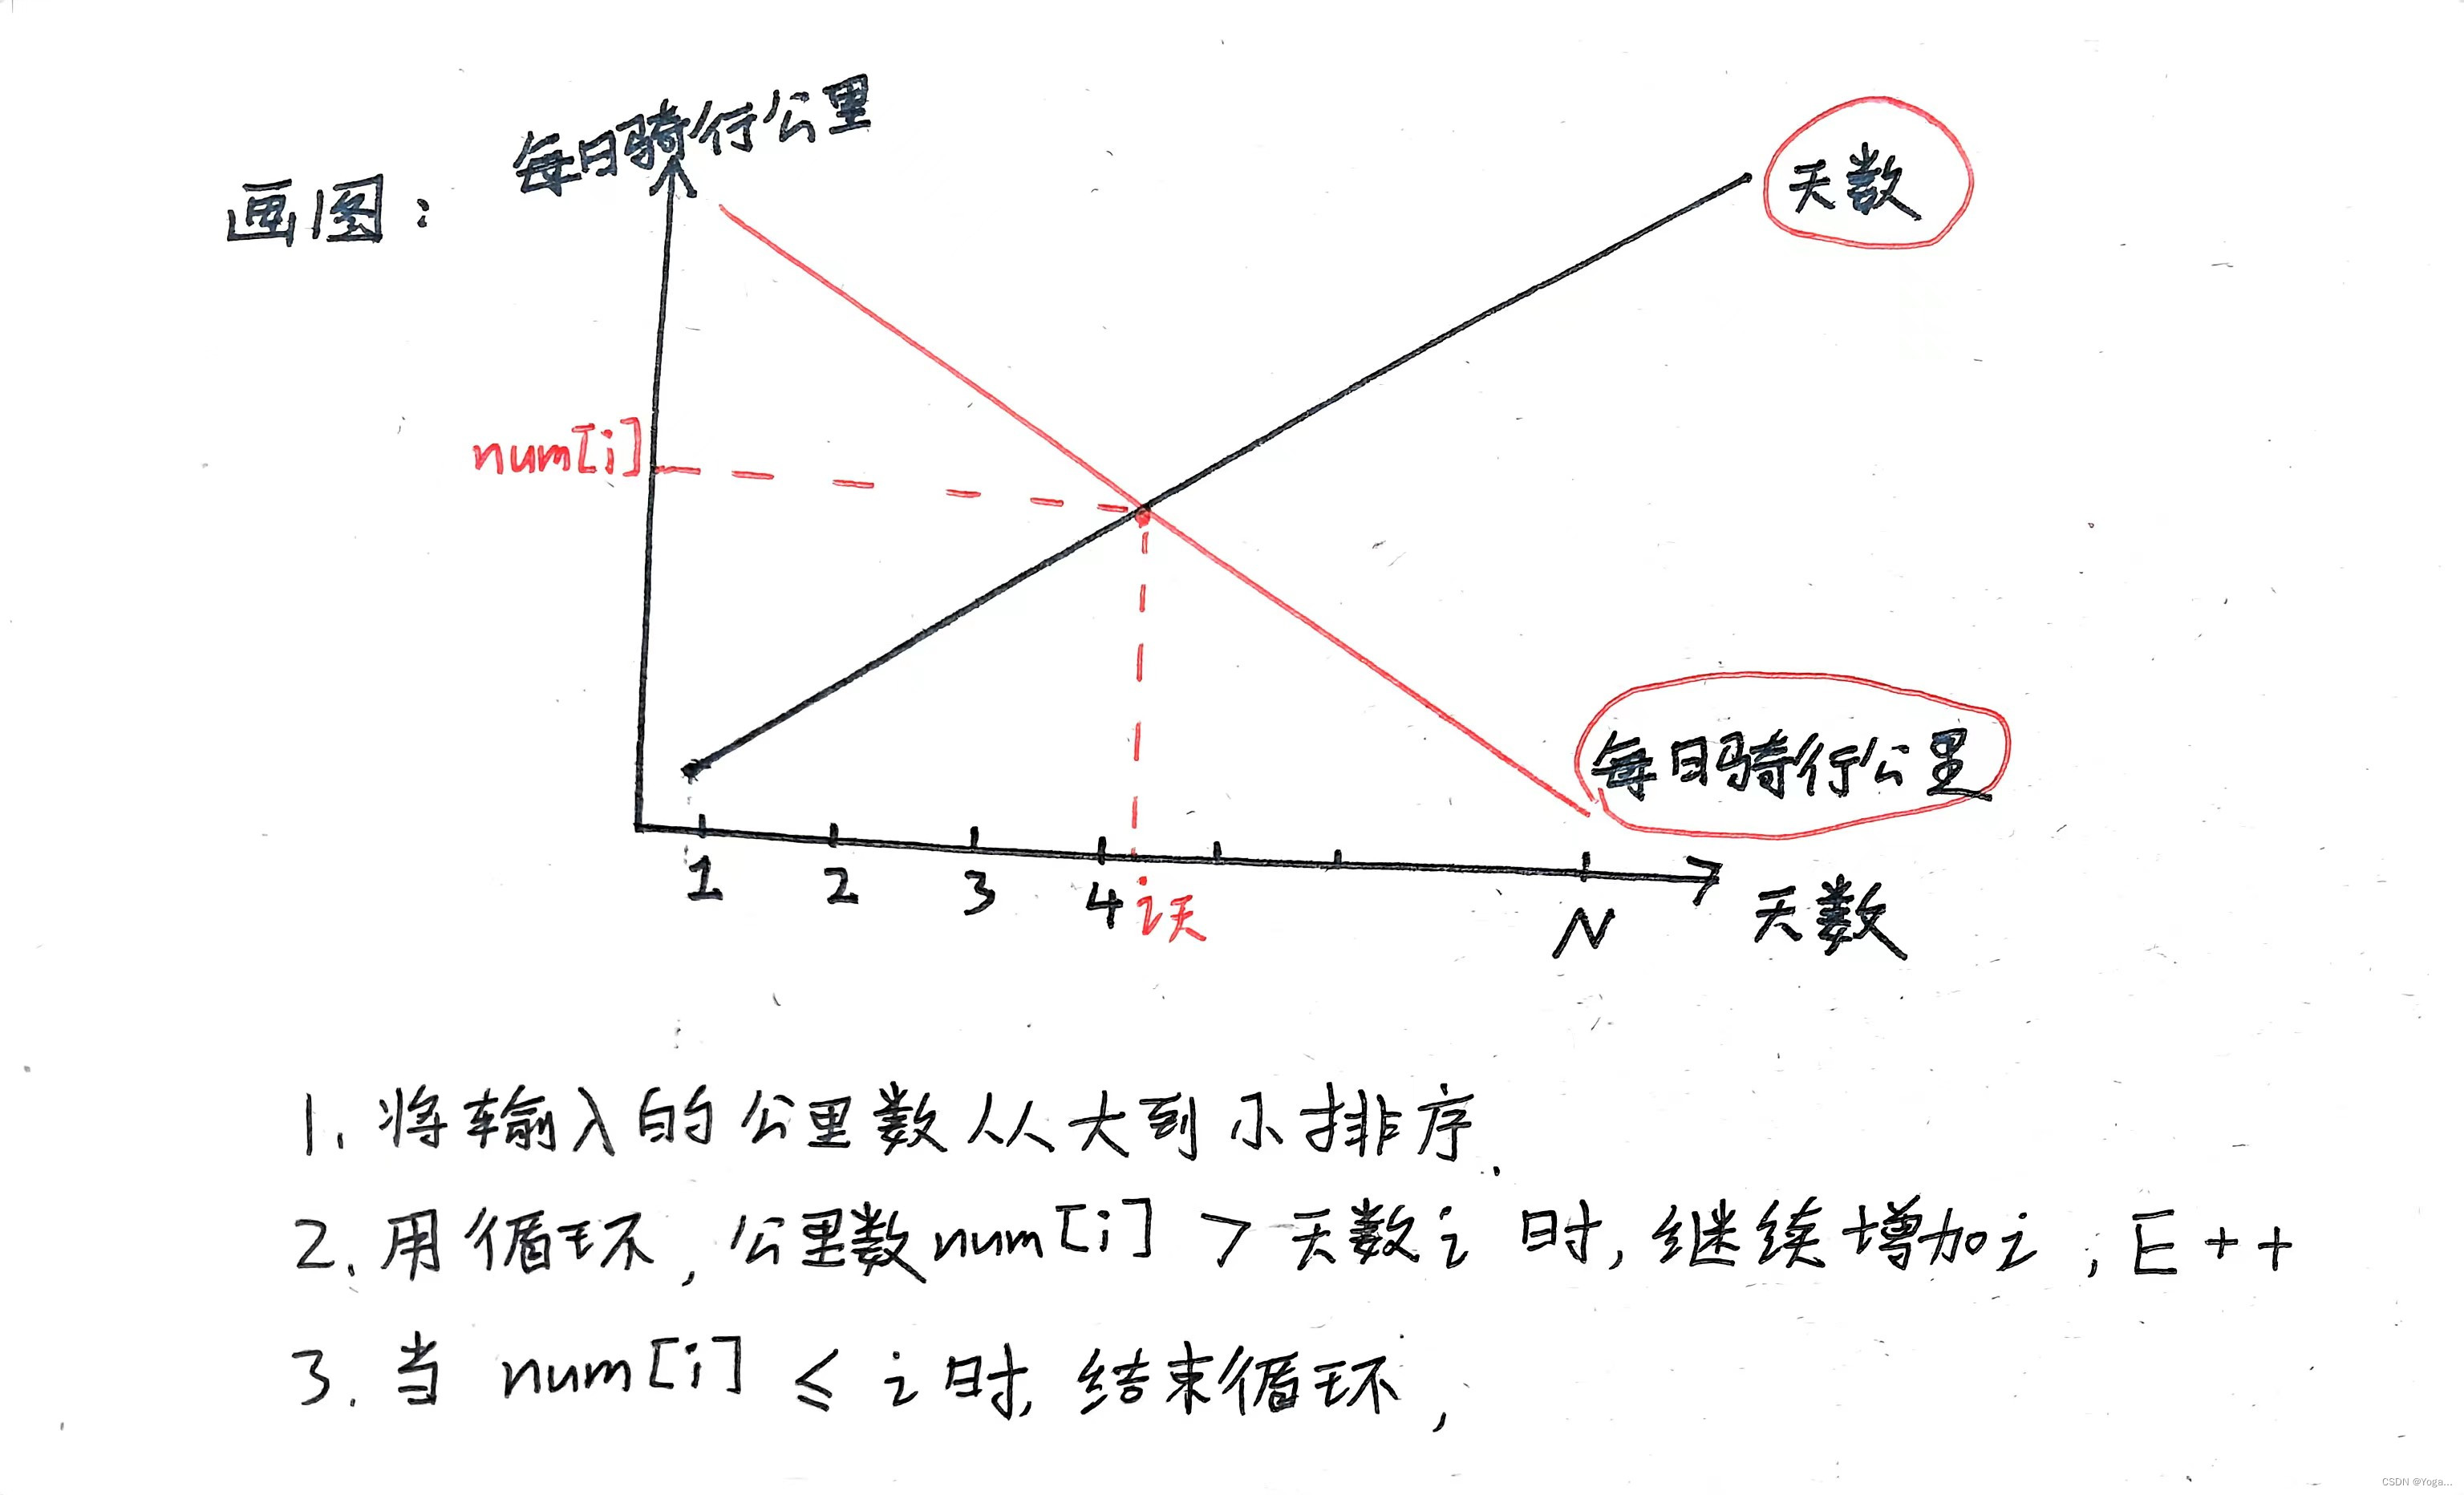 每日骑行公里
画图：
天数
num[i]
每日骑行公里
1 2 3 4 i天 N 天数
1. 将输入的公里数从大到小排序.
2. 用循环, 公里数num[i] > 天数i 时, 继续增加i ; E++
3. 当 num[i] ≤ i 时, 结束循环,
CSDN @Yoga...